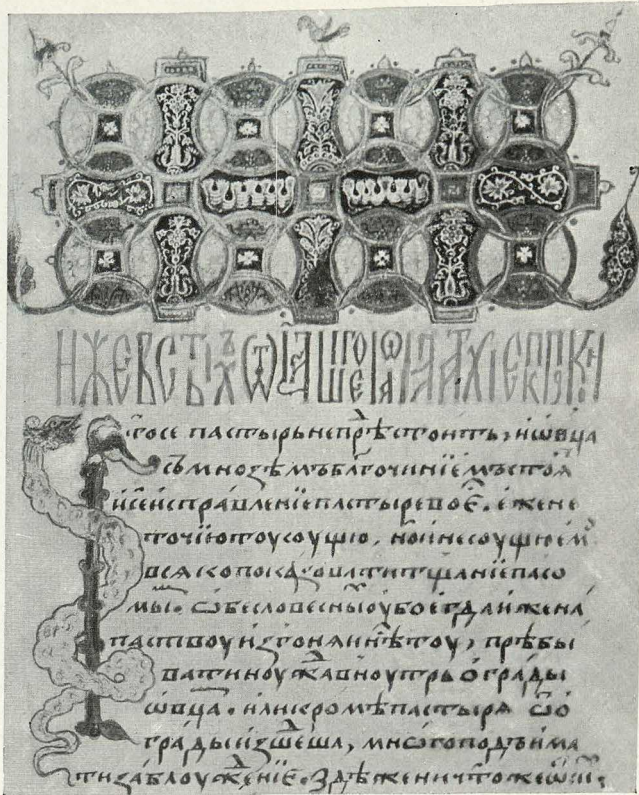 ИЖЕ В СТЫХЪ ѾЦА НШЕГО ІѠАНА АХІЕПКПА
тосе пастырь непрѣстоитъ, иѡвца
съмноземъблгочинїемъстоꙗ
исеисправленїепастыревоє. єжене
точїютоусоущю,ноинесоущюем
всѧкопоказоватитщанїепасо
мы. ѡбесловесныоубоегдаижена
паствоу изгонѧинѣтоу, прѣбы
ватиноужавноутрь ограды
ѡвца. иликромѣпастырѧ ѿо
градыизшеша, многоподъима
тизаблоуженїе. здѣженичтоже